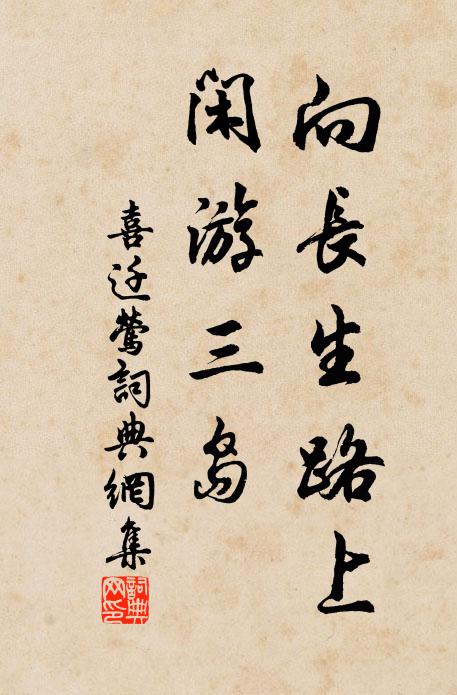 向長生路上
閑游三岛
喜迁鶯詞典網集
詞典网印